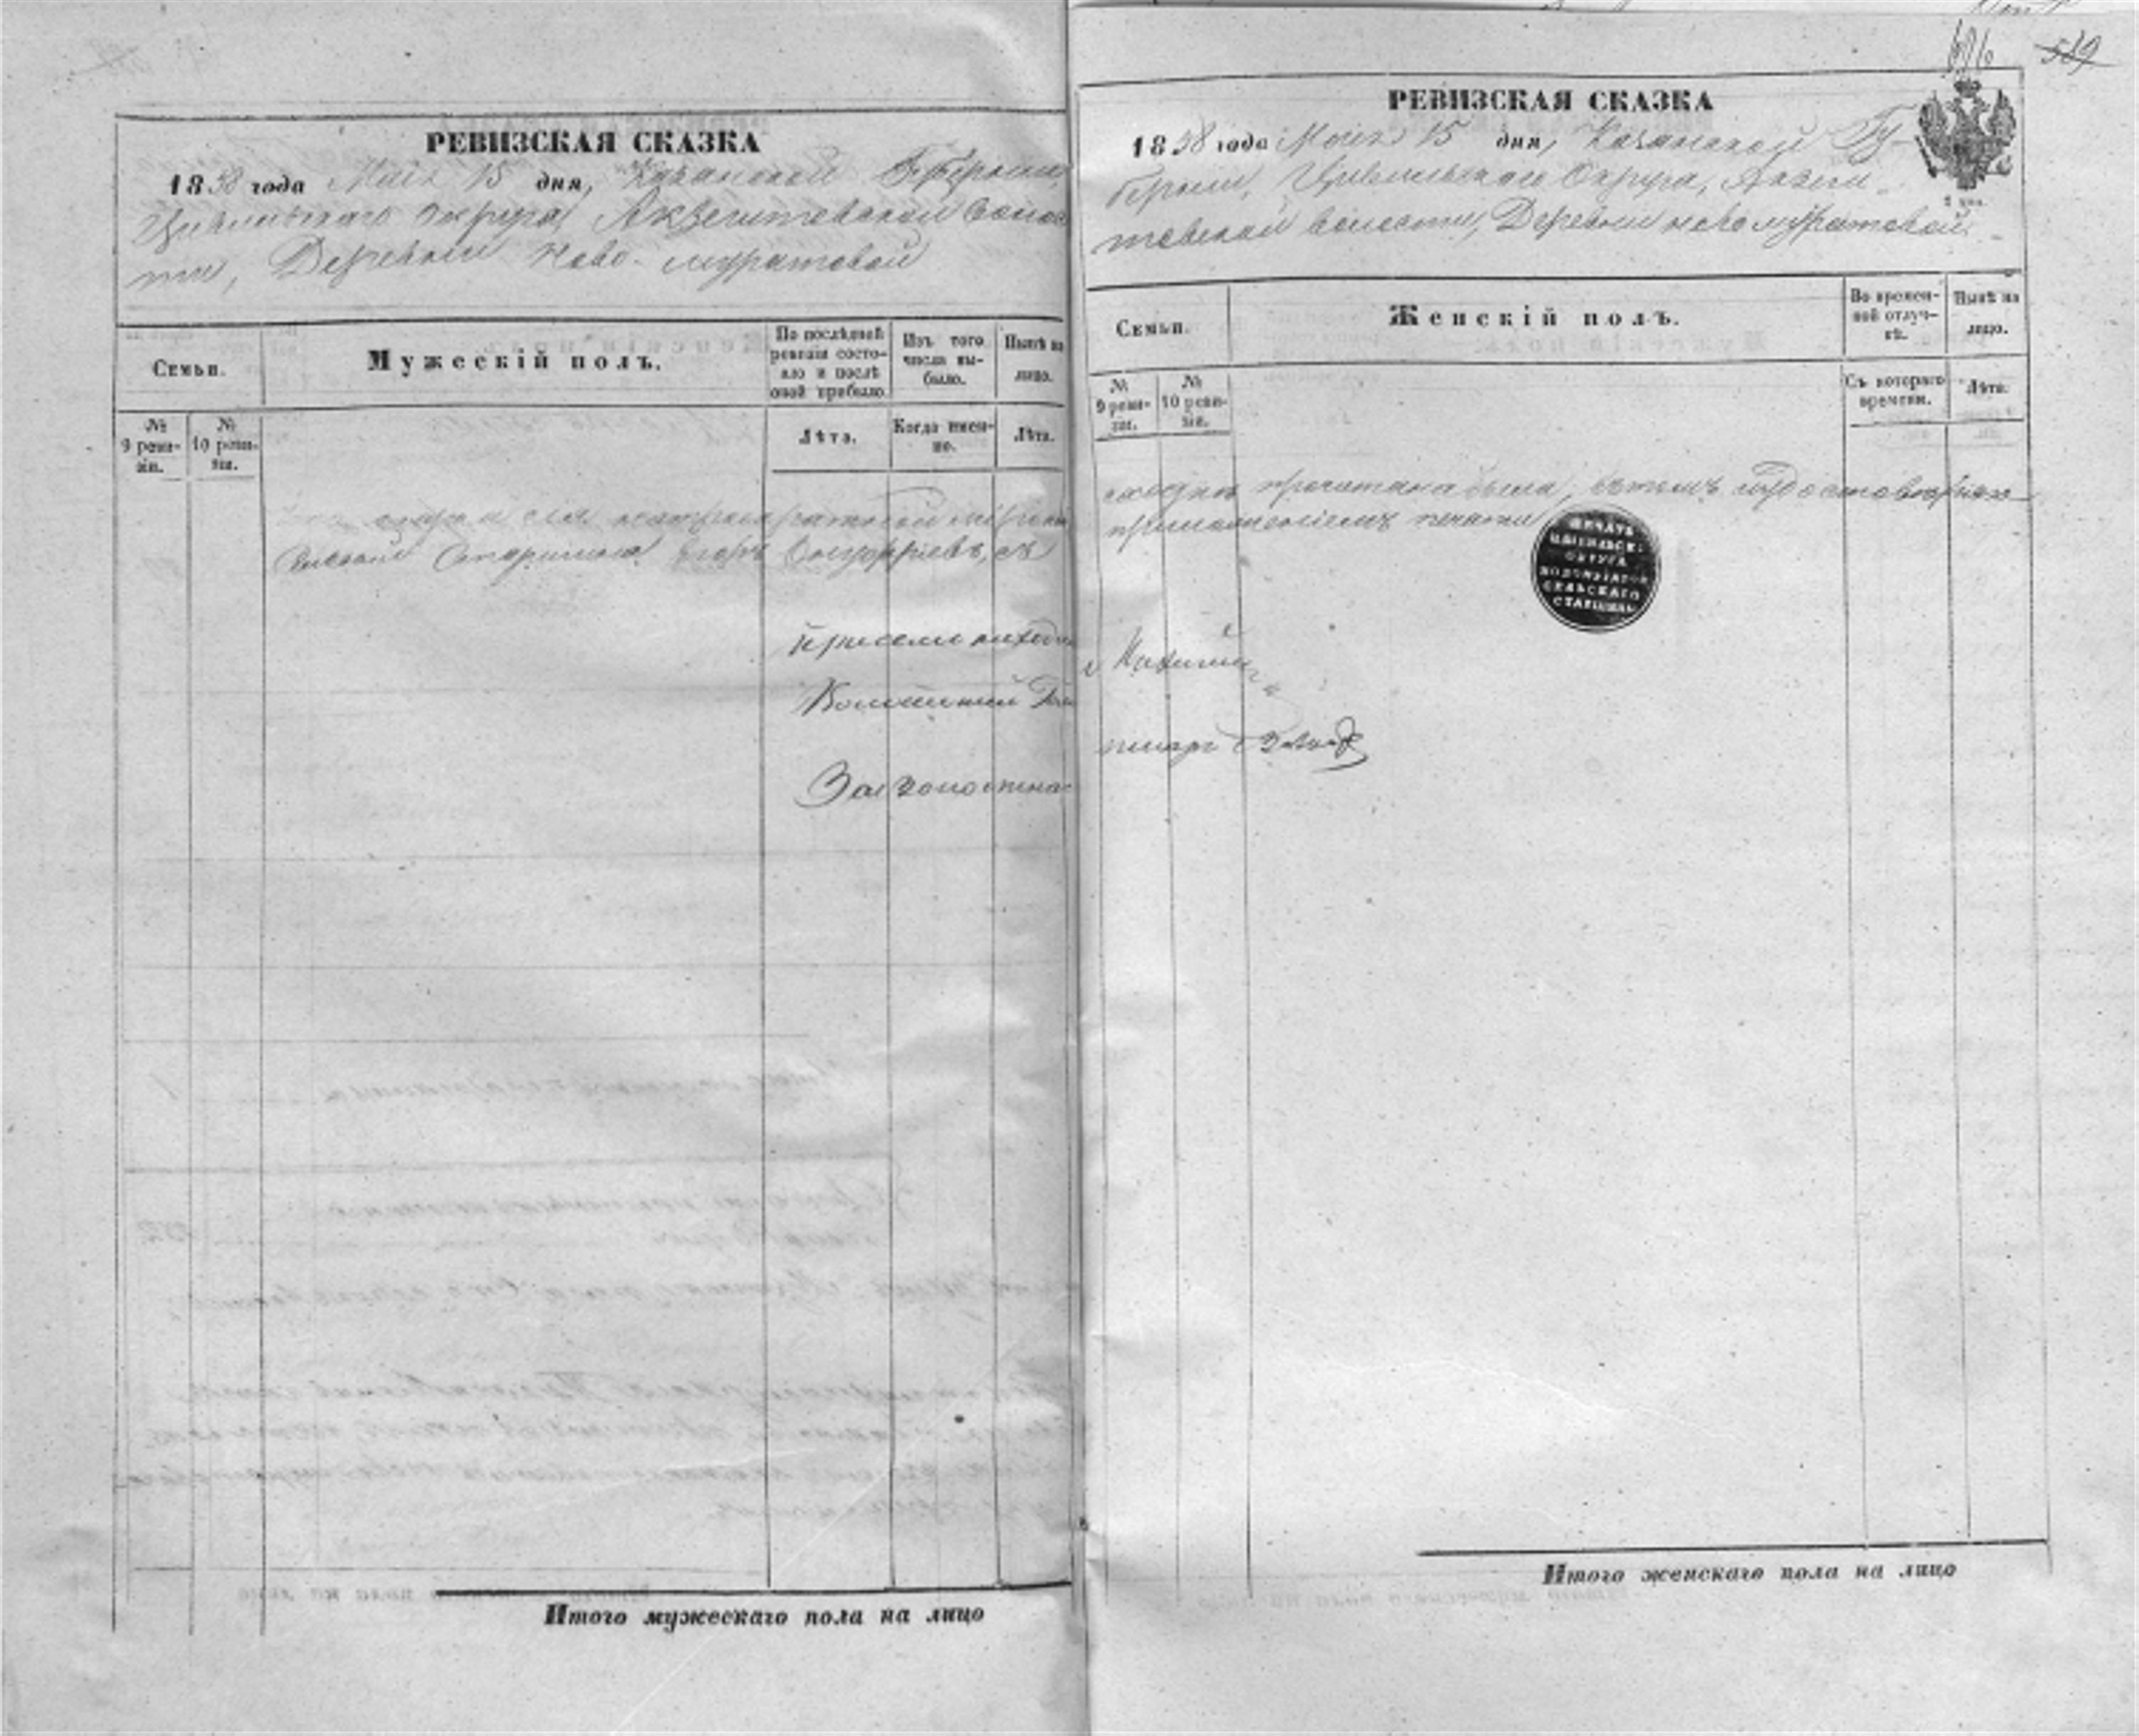 РЕВИЗСКАЯ СКАЗКА
1858 года Мая 15 дня, Казанской Губернии,
Цивильскаго Округа, Акзегитевской волос
ти, Деревни Ново-муратовой
Семьи.
Мужескій полъ.
По послѣдней ревизіи состояло и послѣ оной прибыло.
Изъ того числа выбыло.
Нынѣ на лицо.
№ 9 ревизіи.
№ 10 ревизіи.
Лѣта.
Когда именно.
Лѣта.
сказка сія
Старшина Егоръ
За
Итого мужескаго пола на лицо
589
РЕВИЗСКАЯ СКАЗКА
1858 года Мая 15 дня, Казанской Гу-
берніи, Цивильскаго Округа, Акзеги-
тевской волости, Деревни новомуратовой
Семьи.
Женскій полъ.
Во временной отлучкѣ.
Нынѣ на лицо.
№ 9 ревизіи.
№ 10 ревизіи.
Съ котораго времени.
Лѣта.
прочитана была, въ томъ удостовѣряю
приложеніемъ печати
ПЕЧАТЬ
ЦИВИЛЬСК:
ОКРУГА
СЕЛЬСКАГО
СТАРШИНЫ
Итого женскаго пола на лицо